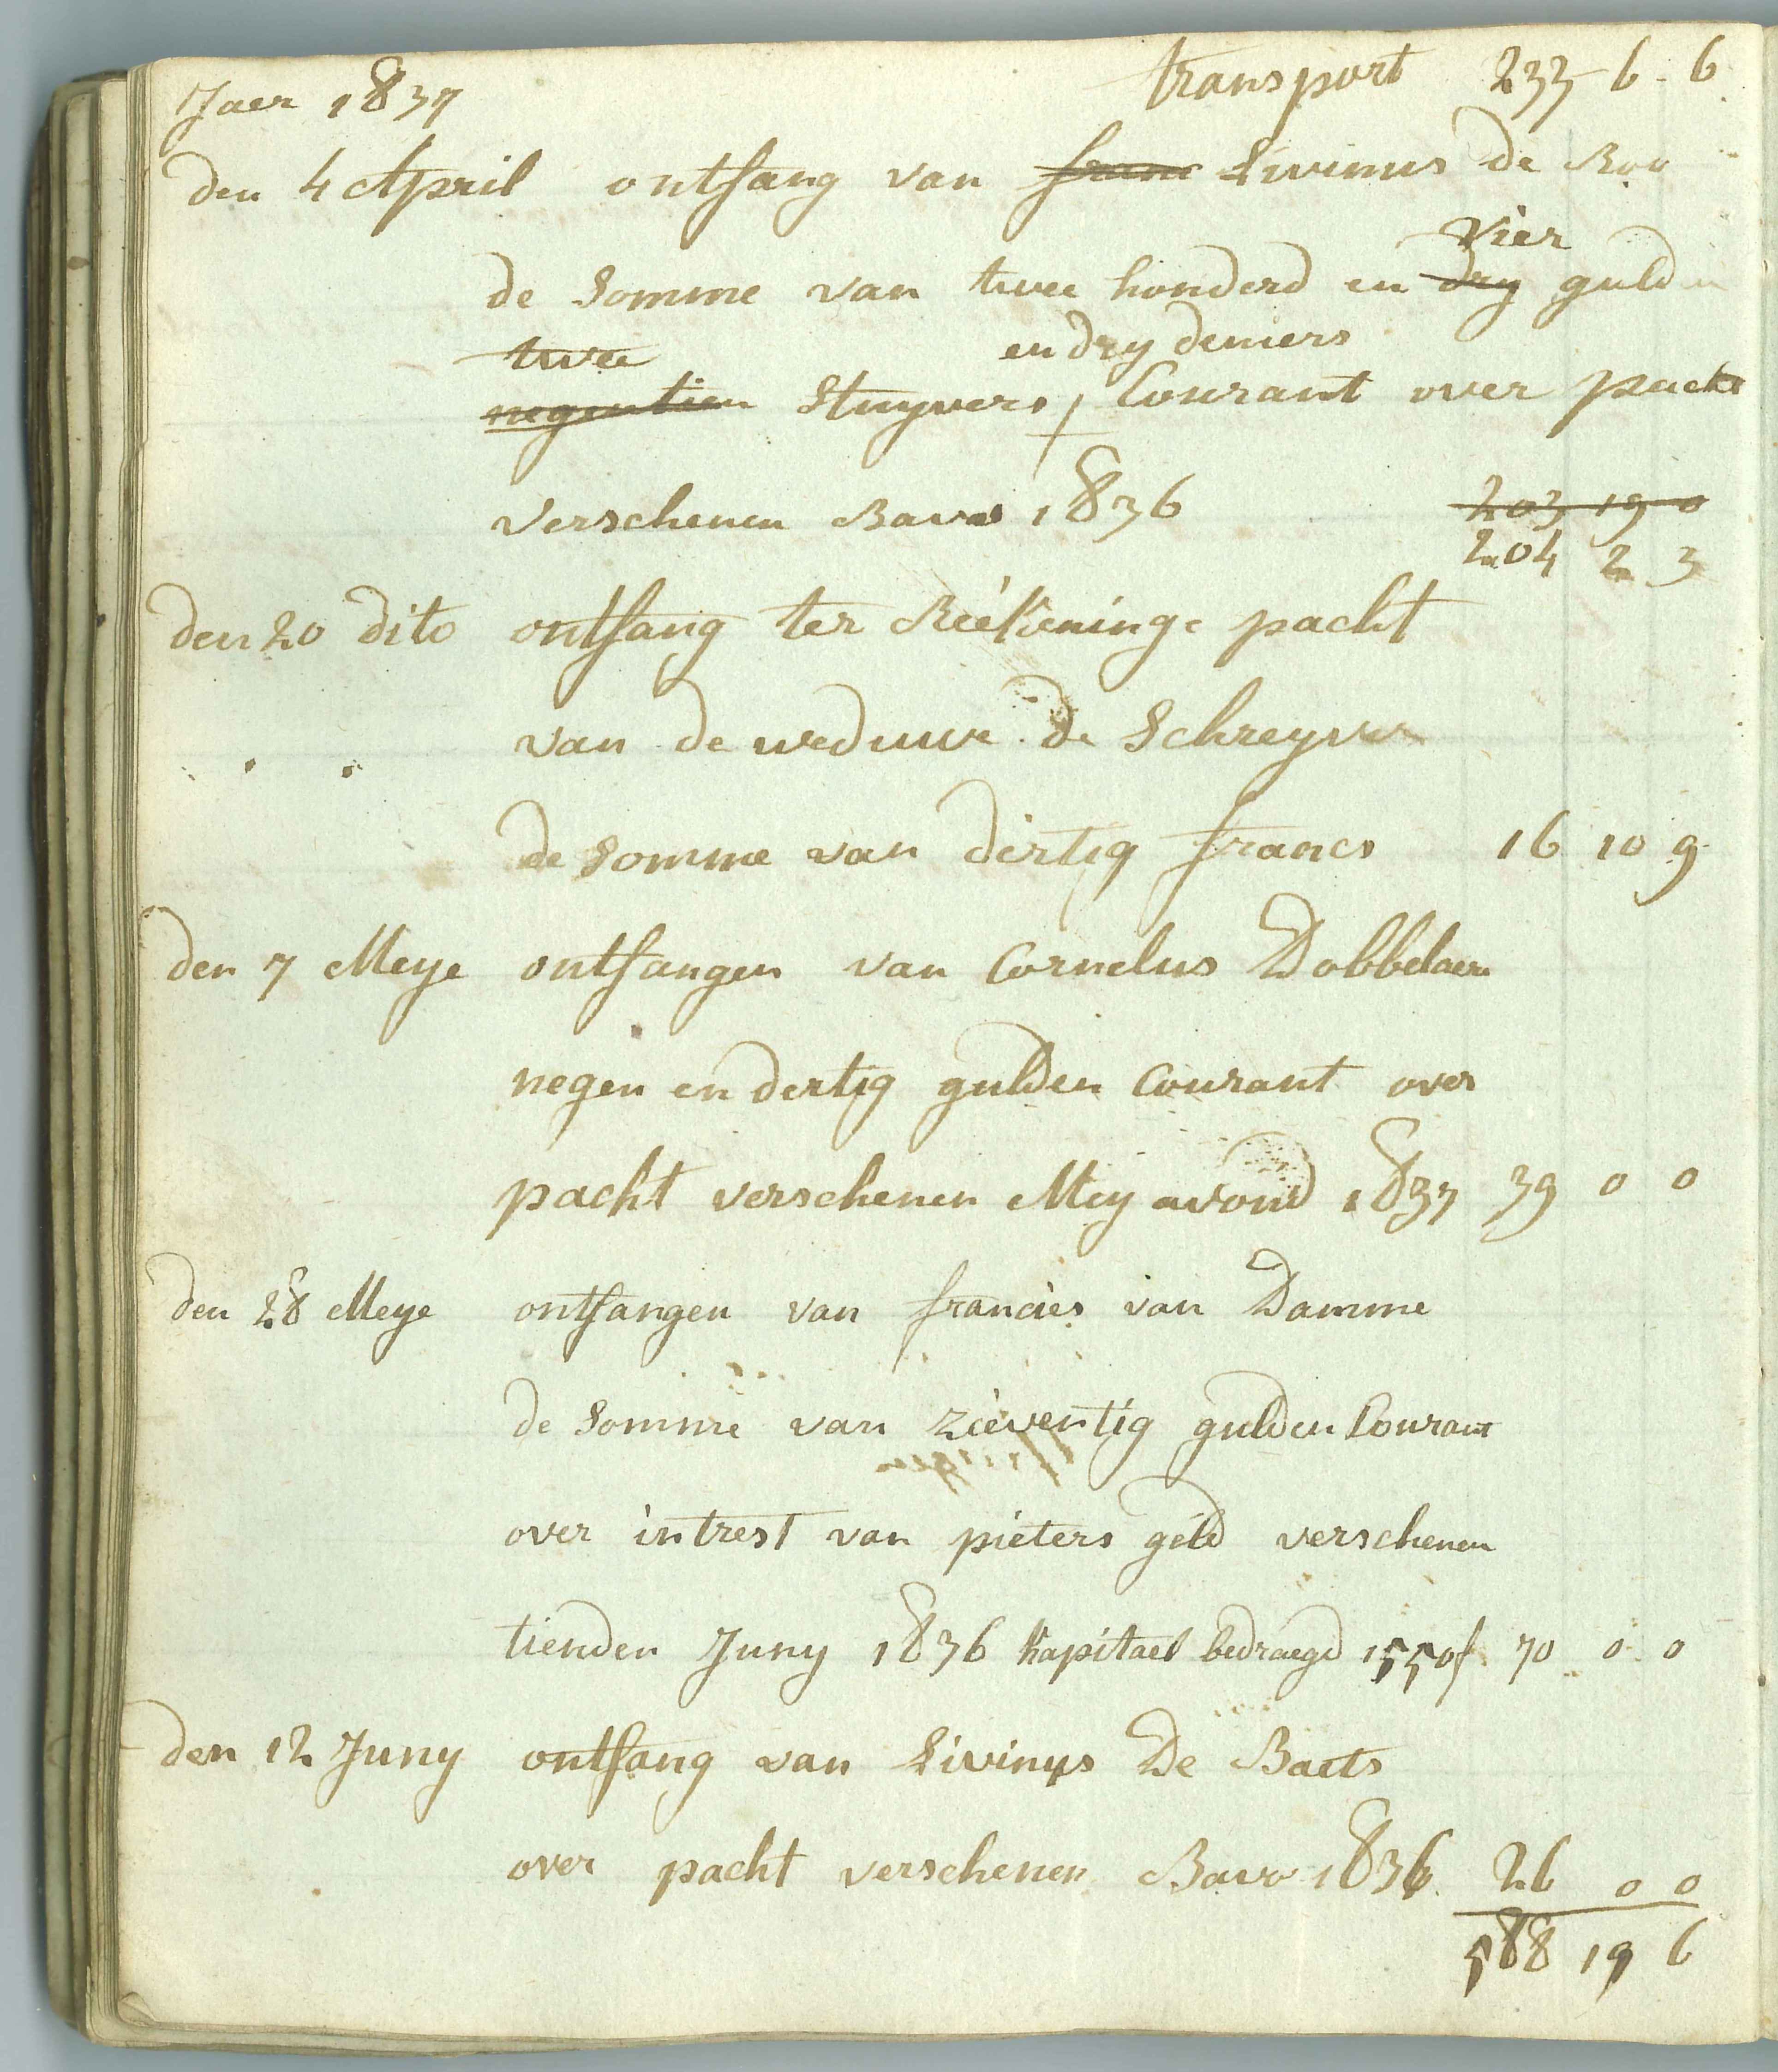 Jaer 1837 transport 233 6 - 6
den 4 April ontfang van franc Livinus de Roo
vier
de Somme van twee honderd en dry gulden
twee en dry deniers
negentien Stuyvers / Courant over pacht
verschenen Bavo 1836 203 19 0
204 2 3
den 20 dito ontfang ter Reékeninge pacht
" " van de weduwe de Schreyver
de Somme van dirtig francs 16 10 9
den 7 Meye ontfangen van Cornelus Dobbelaere
negen en dertig gulden Courant over
pacht verschenen Mey avond 1837 39 0 0
den 28 Meye ontfangen van francies van Damme
de Somme van zieventig gulden Courant
over intrest van pieters geld verschenen
tienden Juny 1836 Kapitael bedraegd 1550f 70 0 0
den 12 Juny ontfang van Livinus De Baets
over pacht verschenen Bavo 1836 26 0 0
588 19 6